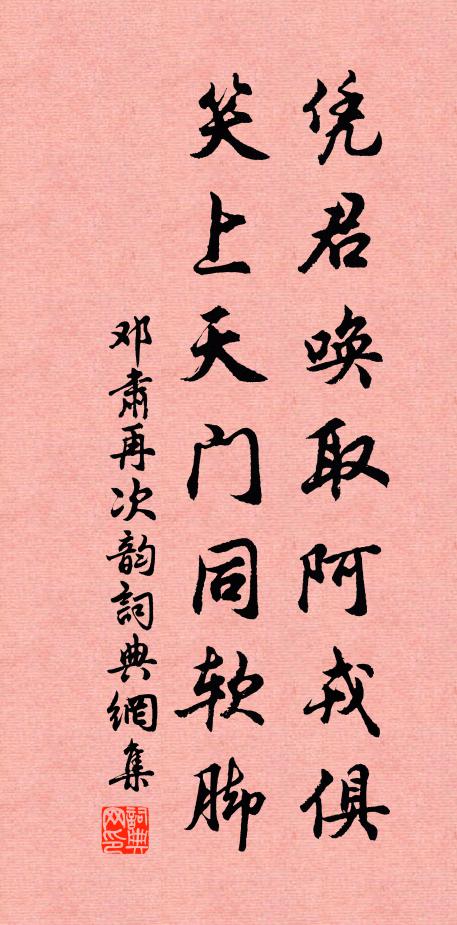 凭君唤取阿戎俱
笑上天门同软脚
邓肃再次韵詞典網集
詞典网印